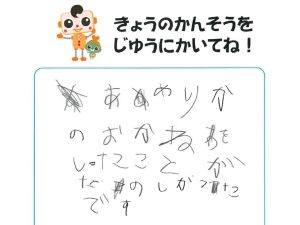 きょうのかんそうを
じゆうにかいてね！
あめりか
のおかねを
しったことが
たのしかった
です